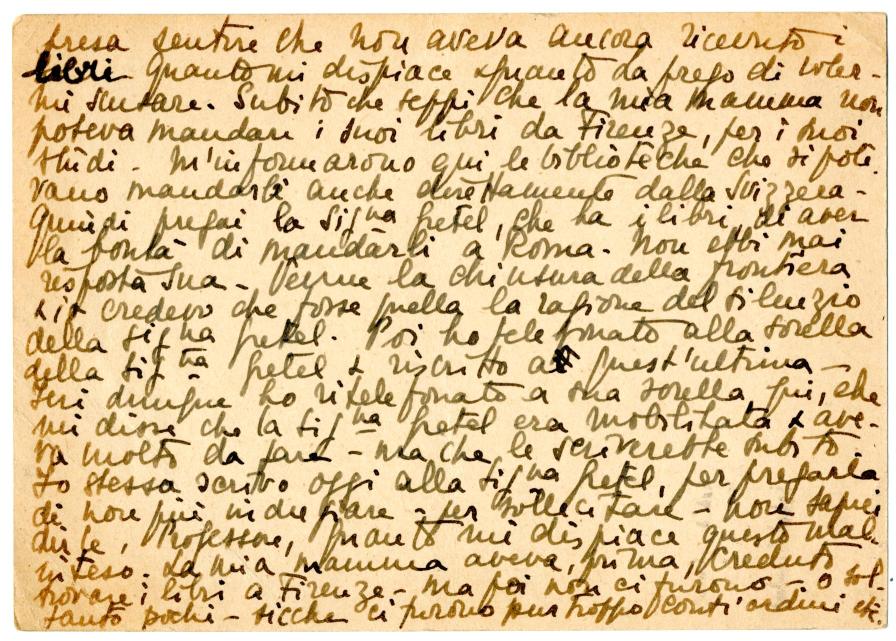 presa sentire che non aveva ancora ricevuto i
libri. Quanto mi dispiace & quanto La prego di voler-
mi scusare. Subito che seppi che la mia mamma non
poteva mandare i suoi libri da Firenze, per i suoi
studi. M'informarono qui le biblioteche che si pote-
vano mandarli anche direttamente dalla Svizzera -
Quindi pregai la Signa Gretel, che ha i libri, di aver
la bontà di mandarli a Roma. Non ebbi mai
risposta sua - Venne la chiusura della frontiera
& io credevo che fosse quella la ragione del silenzio
della Signa Gretel. Poi ho telefonato alla sorella
della Signa Gretel & riscritto a quest'ultima -
Ieri dunque ho ritelefonato a sua sorella, qui, che
mi disse che la Signa Gretel era mobilitata & ave-
va molto da fare - ma che le scriverebbe subito.
Io stessa scrivo oggi alla Signa Gretel, per pregarla
di non più indugiare - per sollecitare - non saprei
dirLe, Professore, quanto mi dispiace questo mal-
inteso. La mia mamma aveva, prima, creduto
trovare i libri a Firenze - ma poi non ci furono - o sol-
tanto pochi - sicche ci furono pur troppo conti ordini